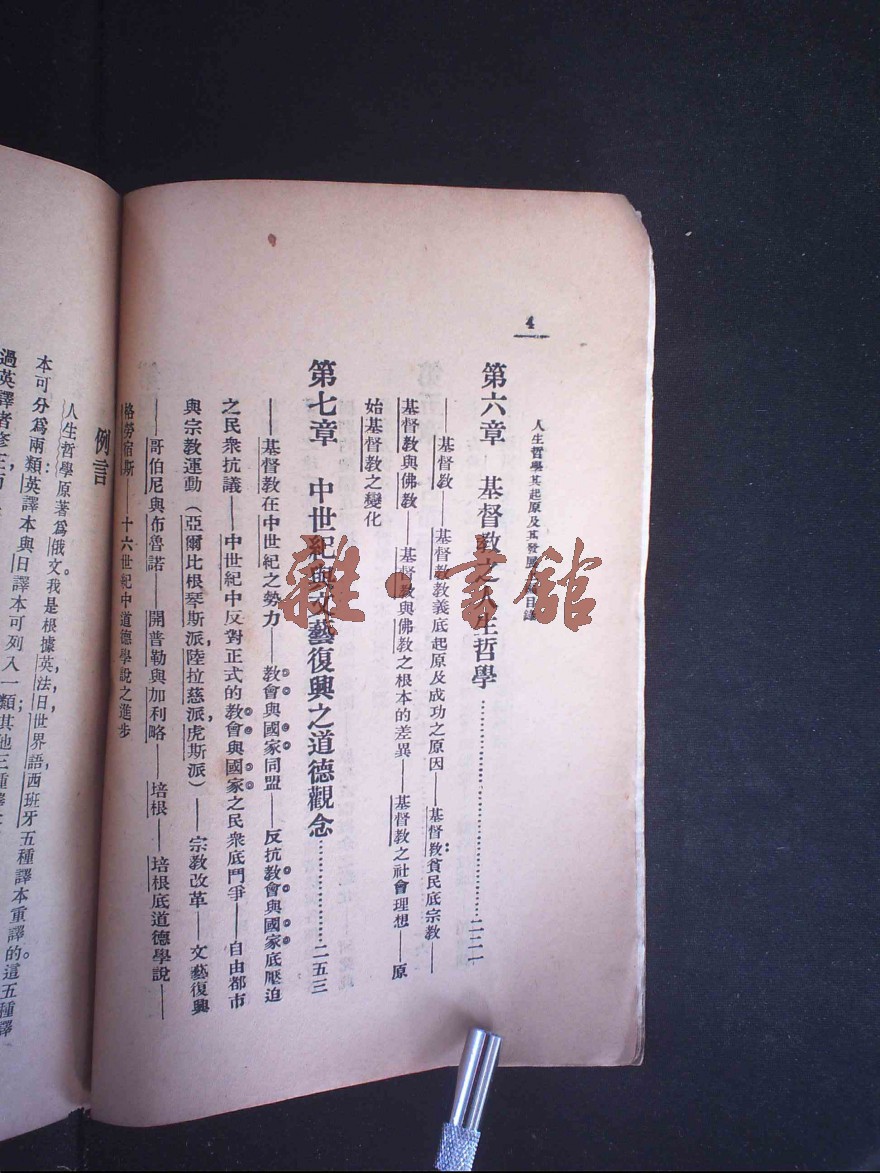 4
人生哲學其起原及其發展 目錄
第六章 基督教之人生哲學……………………二二一
——基督教——基督教教義底起原及成功之原因——基督教貧民底宗教——
基督教與佛教——基督教與佛教之根本的差異——基督教之社會理想——原
始基督教之變化
第七章 中世紀與文藝復興之道德觀念…………二五三
——基督教在中世紀之勢力——教會與國家同盟——反抗教會與國家底壓迫
之民衆抗議——中世紀中反對正式的教會與國家之民衆底鬥爭——自由都市
與宗教運動(亞爾比根琴斯派,陸拉慈派,虎斯派)——宗教改革——文藝復興
——哥伯尼與布魯諾——開普勒與加利略——培根——培根底道德學說——
格勞宿斯——十六世紀中道德學說之進步
例言
人生哲學原著爲俄文,我是根據英,法,日,世界語,西班牙五種譯本重譯的。這五種譯
本可分爲兩類:英譯本與日譯本可列入一類;其他三種
過英譯者修
雜·書舘